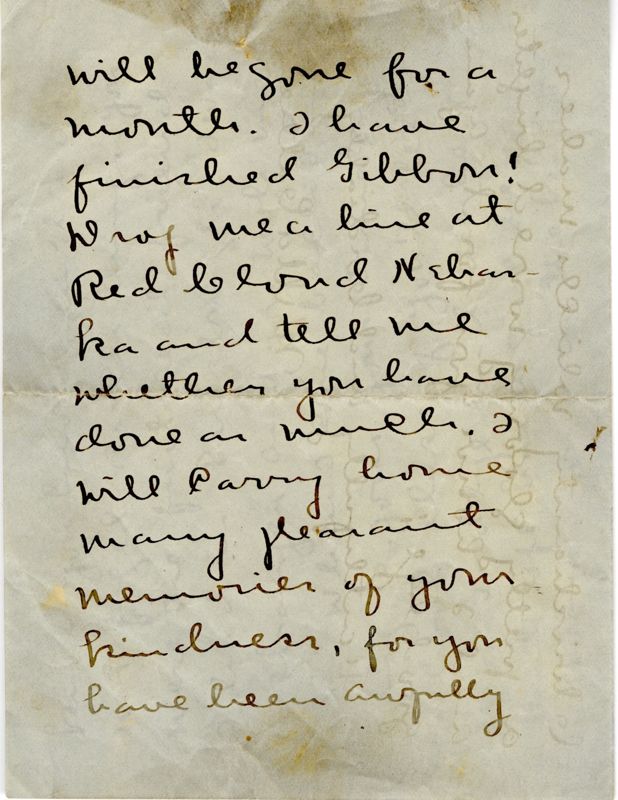 will be gone for a
month. I have
finished Gibbon!
Drop me a line at
Red Cloud Nebas-
ka and tell me
whether you have
done as much. I
will carry home
many pleasant
memories of your
kindness, for you
have been awfully